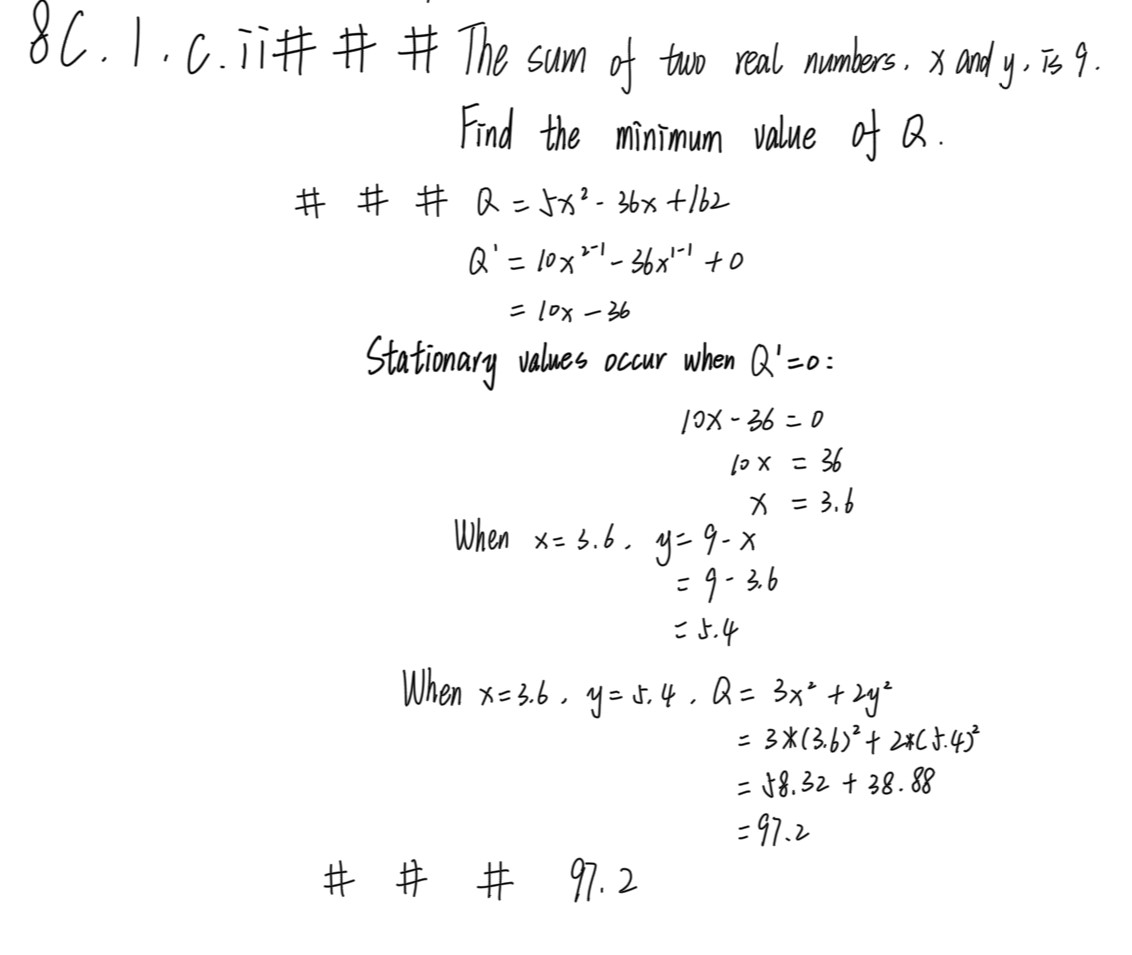 8C.1.c.ii# # # The sum of two real numbers, x and y, is 9.
Find the minimum value of Q.
# # # Q = 5x² - 36x + 162
Q' = 10x²⁻¹ - 36x¹⁻¹ + 0
= 10x - 36
Stationary values occur when Q'=0:
10x - 36 = 0
10x = 36
x = 3.6
When x = 3.6, y = 9 - x
= 9 - 3.6
= 5.4
When x=3.6, y=5.4, Q = 3x² + 2y²
= 3*(3.6)² + 2*(5.4)²
= 58.32 + 38.88
= 97.2
# # # 97.2